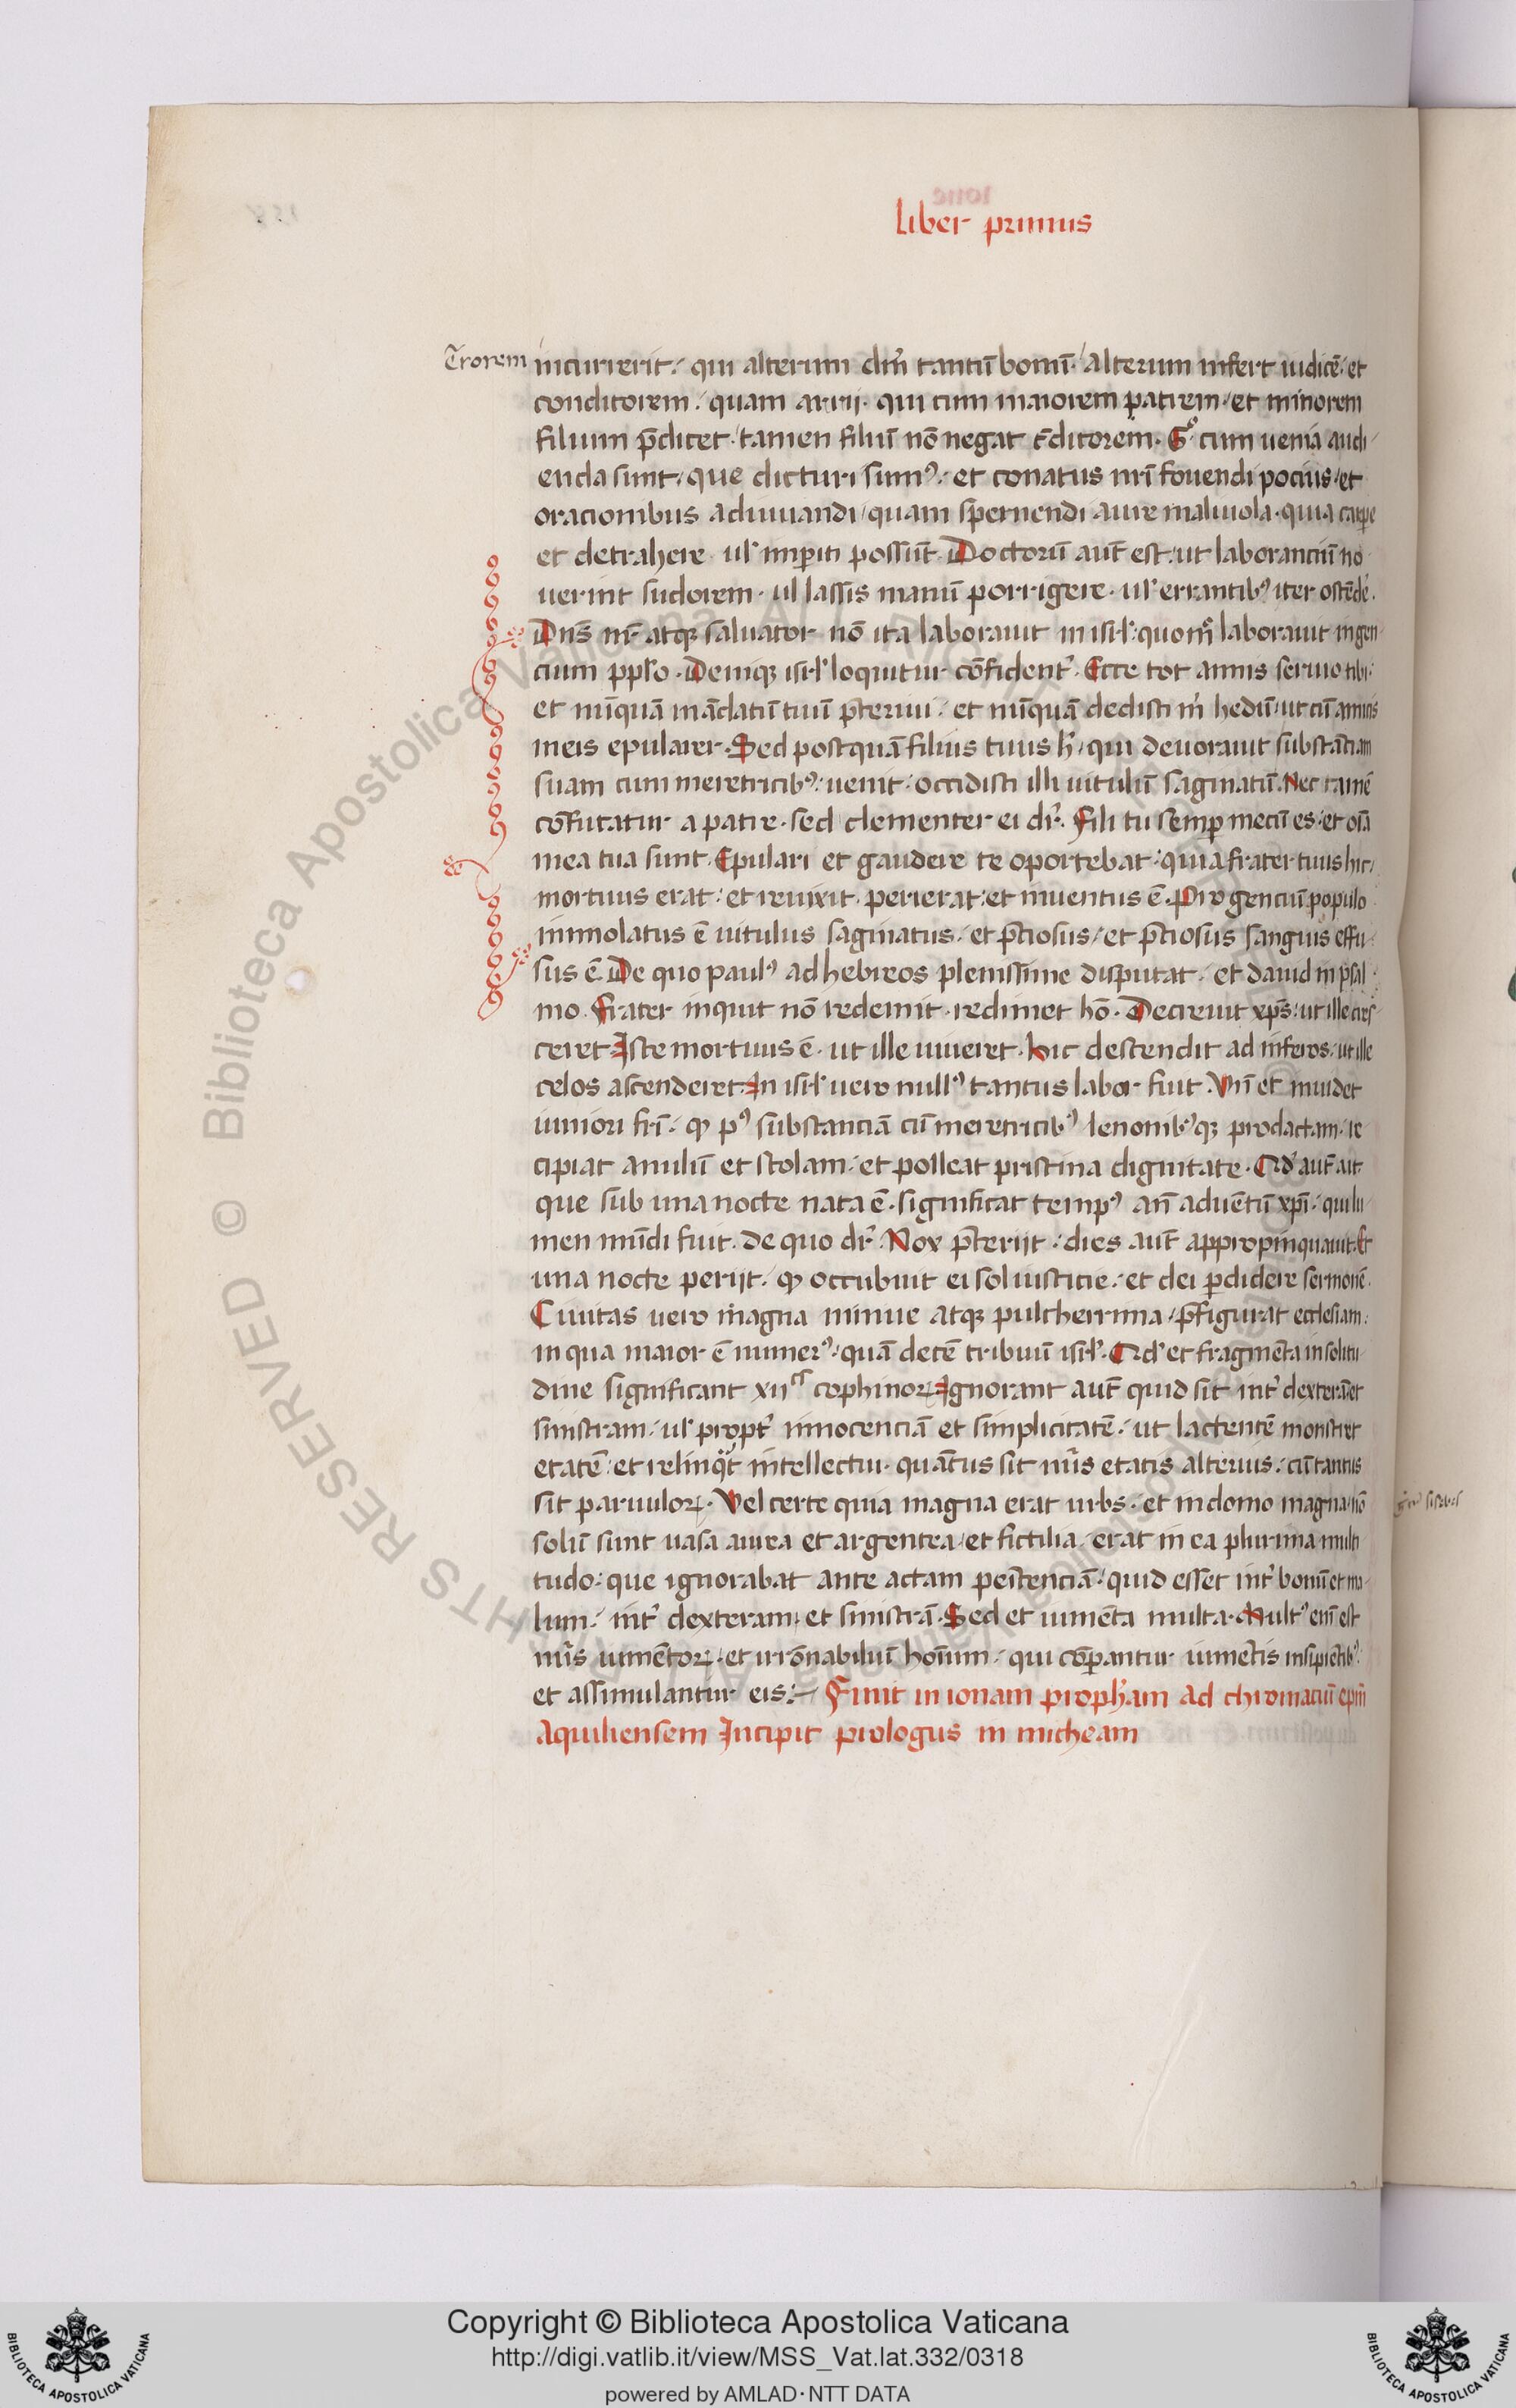 liber primus
Errorem incurrerit. qui alterum dm̄ tantū bonū. alterum infert iudicē. et
conditorem. quam arrij. qui cum maiorem patrem. et minorem
filium p̄dicet. tamen filiū nō negat c̄ditorem. Gͦ. cum uenia audi
enda sunt. que dicturi sumꝰ. et conatus nr̄i fouendi pocius. et
oracionibus adiuuandi. quam spernendi aure maliuola. quia carpe
et detrahere. ul' imꝑiti possūt. Doctorū aut̄ est. ut laboranciū no
uerint sudorem. ul lassis manū porrigere. ul' errantibꝰ iter ostēdē.
Dn̄s nr̄ atqꝫ saluator nō ita laborauit in isrl'. quom̊ laborauit in gen
cium ppl'o. Deniqꝫ isrl' loquitur cōfident᷑. Ecce tot annis seruio tibi.
et nūquā mādatū tuū p̄teriui. et nūquā dedisti m̍ hedū. ut cū amicis
meis epularer. Sed postquā filius tuus h̍. qui deuorauit substātiam
suam cum meretricibꝰ. uenit. occidisti illi uitulū saginatū. Nec tamē
cōfutatur a patre. sed clementer ei dr̄. Fili tu semꝑ mecū es. et oīa
mea tua sunt. Epulari et gaudere te oportebat. quia frater tuus hic
mortuus erat. et reuixit. perierat. et inuentus ē. Pro genciū populo
inmolatus ē uitulus saginatus. et p̄ciosus. et p̄ciosus sanguis effu
sus ē. De quo paulꝰ ad hebreos plenissime disputat. et dauid in psal
mo. Frater inquit nō redemit. redimet hō. Decreuit xp̄s. ut ille cres
ceret. Iste mortuus ē. ut ille uiueret. Hic descendit ad inferos. ut ille
celos ascenderet. In isrl' uero nullꝰ tantus labor fuit. Vn̄ et inuidet
iuniori fr̄i. qꝫ pꝰ substanciā cū meretricibꝰ lenonibꝰqꝫ prodactam. re
cipiat anulū et stolam. et polleat pristina dignitate. Qd' aut̄ ait.
que sub una nocte nata ē. significat tempꝰ an̄ aduētū xpī. qui lu
men mūdi fuit. de quo dr̄. Nox p̄terijt. dies aut̄ appropinquauit. Et
una nocte perijt. qꝫ occubuit ei sol iusticie. et dei ꝑdidere sermonē.
Ciuitas uero magna niniue atqꝫ pulcherrima. p̄figurat ecclesiam.
in qua maior ē numerꝰ. quā decē tribuū isrl'. Qd' et fragmēta in solitu
dine significant xij cophinoꝝ. Ignorant aut̄ quid sit int᷑ dexterā et
sinistram. ul' propt᷑ innocenciā et simplicitatē. ut lactentē monstret
etatē. et relinq̄t intellectui. quātus sit nūs etatis alterius. cū tantus
sit paruuloꝝ. Vel certe quia magna erat urbs. et in domo magna. nō
solū sunt uasa aurea et argentea. et fictilia. erat in ea plurima multi
tudo. que ignorabat ante actam penitenciā. quid esset int᷑ bonū et ma
lum. int᷑ dexteram. et sinistrā. Sed et iumēta multa. Multꝰ enī est
nūs iumētoꝝ. et irrōnabiliū hoīnum. qui cōparantur iumētis insipiētibꝰ.
et assimulantur eis. Finit in ionam proph̄am ad chromaciū ep̄m
Aquiliensem Incipit prologus in micheam
Copyright © Biblioteca Apostolica Vaticana
http://digi.vatlib.it/view/MSS_Vat.lat.332/0318
powered by AMLAD·NTT DATA